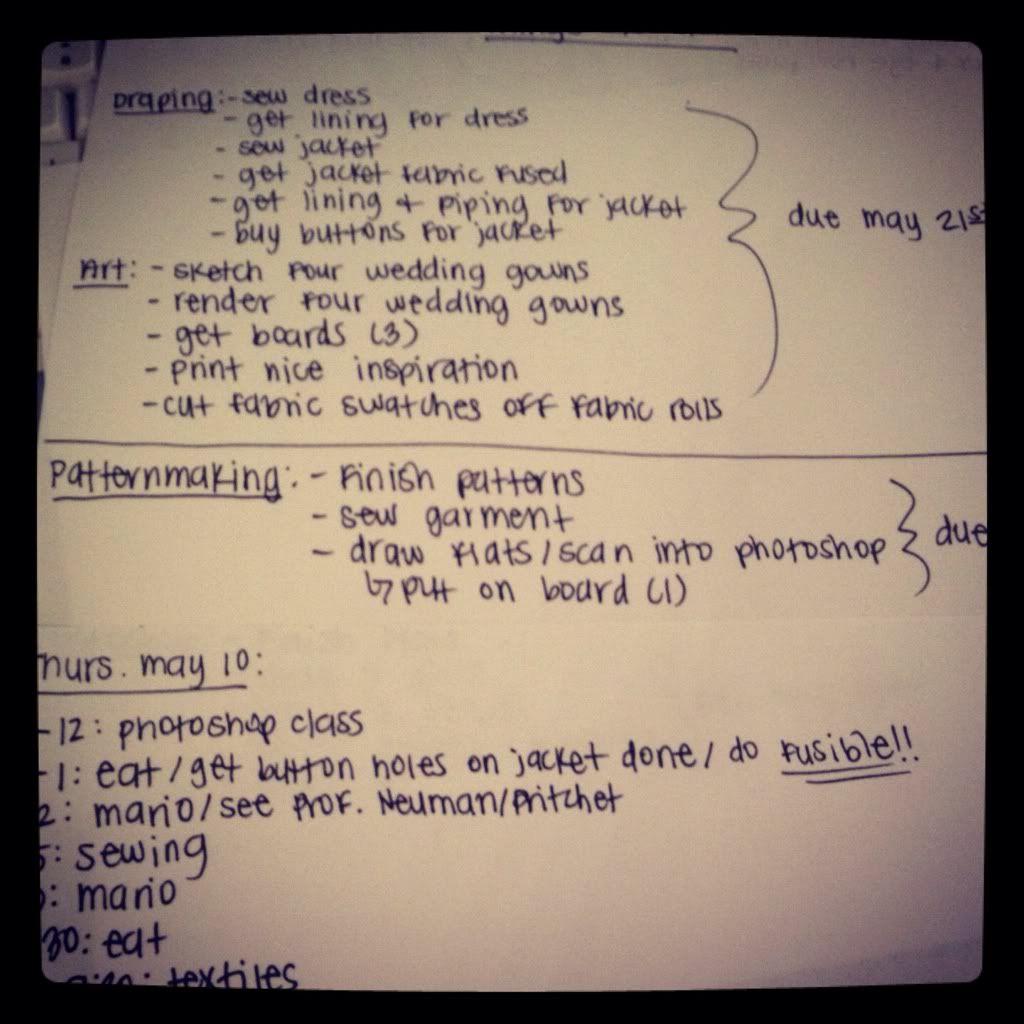 Draping: - sew dress
- get lining for dress
- sew jacket
- get jacket fabric fused
- get lining + piping for jacket
- buy buttons for jacket
due may 21st
Art: - sketch four wedding gowns
- render four wedding gowns
- get boards (3)
- print nice inspiration
- cut fabric swatches off fabric rolls
Patternmaking: - Finish patterns
- sew garment
- draw flats/scan into photoshop
↳ put on board (1)
due
Thurs. may 10:
-12: photoshop class
-1: eat/get button holes on jacket done/do fusible!!
2: mario/see Prof. Neuman/Pritchet
5: sewing
: mario
30: eat
: textiles